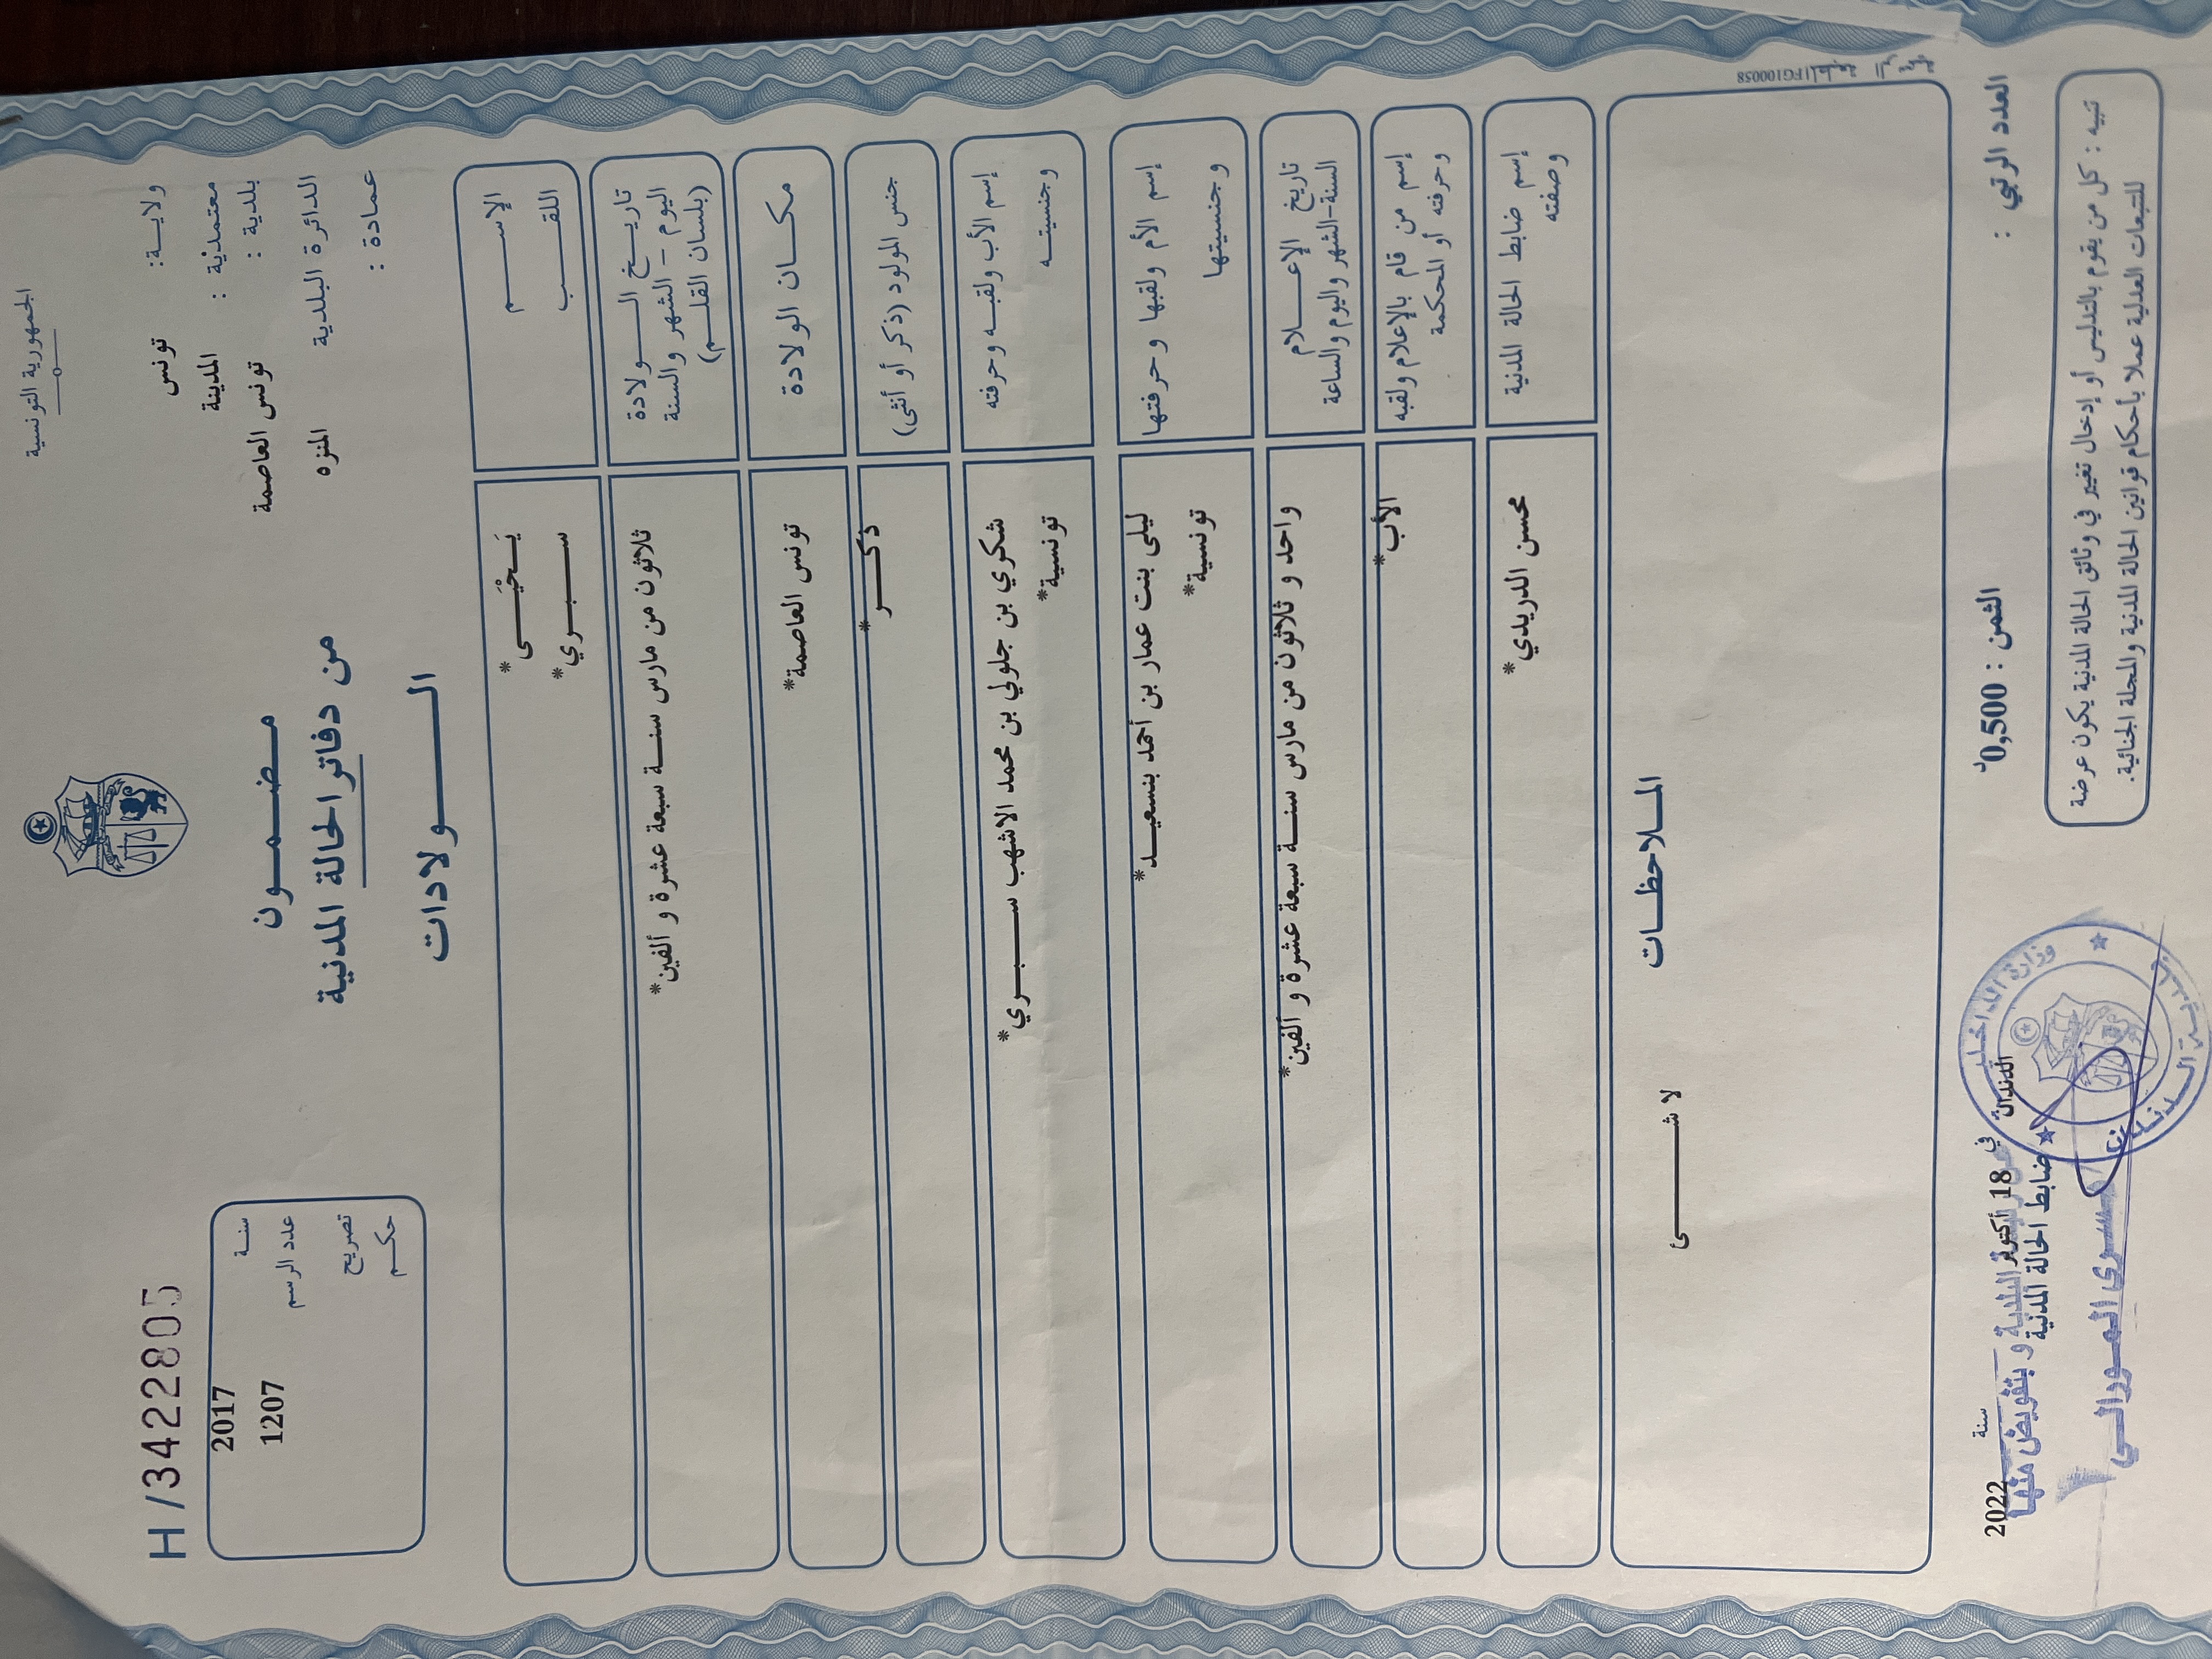 الجمهورية التونسية
H/3422805
ولاية: تونس
معتمدية : المدينة
بلدية : تونس العاصمة
الدائرة البلدية المنزه
عمادة :
مضمون
من دفاتر الحالة المدنية
الولادات
سنة 2017
عدد الرسم 1207
تصريح
حكم
الإسم يَحْيَى*
اللقب سبري*
تاريخ الولادة
اليوم - الشهر والسنة
(بلسان القلم)
ثلاثون من مارس سنة سبعة عشرة و ألفين*
مكان الولادة تونس العاصمة*
جنس المولود (ذكر أو أنثى) ذكر*
إسم الأب ولقبه وحرفته شكري بن جلولي بن محمد الاشهب سبري*
وجنسيته تونسية*
إسم الأم ولقبها وحرفتها ليلى بنت عمار بن أحمد بنسعيد*
وجنسيتها تونسية*
تاريخ الإعلام
السنة-الشهر واليوم والساعة
واحد و ثلاثون من مارس سنة سبعة عشرة و ألفين*
إسم من قام بالإعلام ولقبه
وحرفته أو المحكمة
الأب*
إسم ضابط الحالة المدنية
وصفته
محسن الدريدي*
الملاحظات
لا شئ
FG100058
العدد الرتبي :
الثمن : 0,500د
الدندان في 18 أكتوبر سنة 2022
ضابط الحالة المدنية
البلدية و بتفويض منها
وزارة الداخلية
تنبيه : كل من يقوم بالتدليس أو إدخال تغيير في وثائق الحالة المدنية يكون عرضة
للتتبعات العدلية عملا بأحكام قوانين الحالة المدنية والمجلة الجنائية.